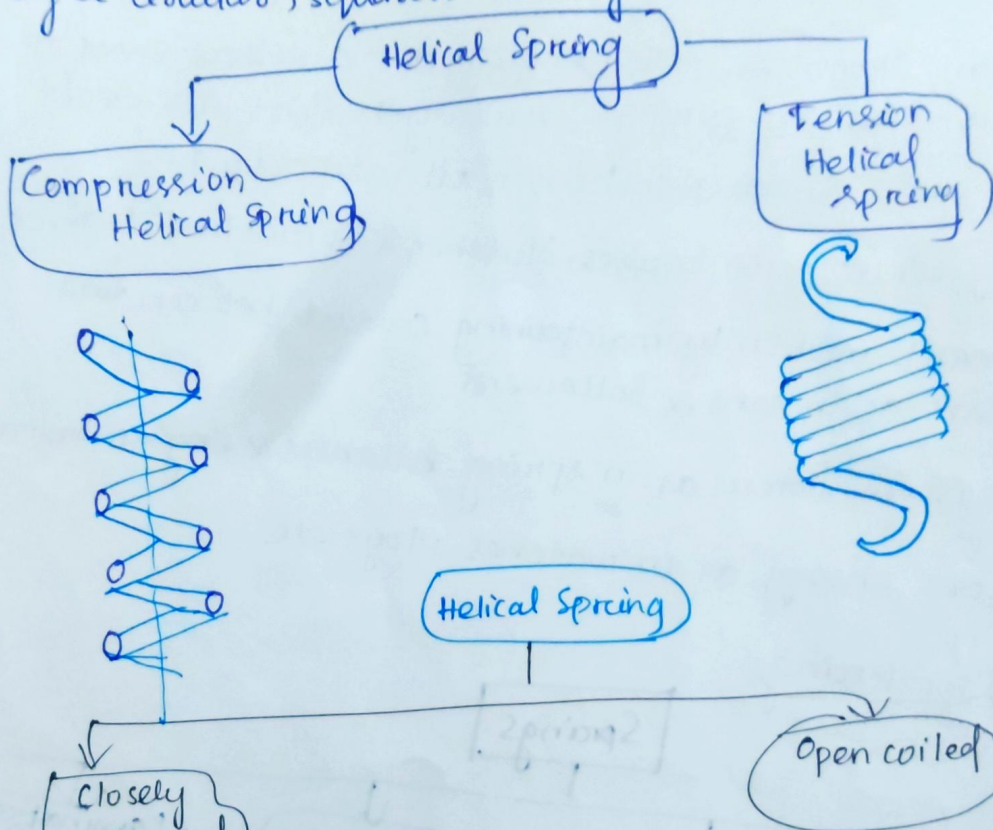 Helical Spring
Compression
Helical Spring
Tension
Helical
Spring
Helical Spring
Closely
Open coiled